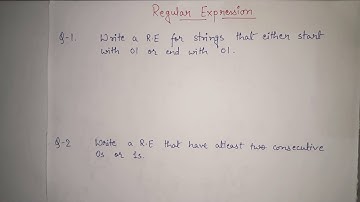 Regular Expression
Q-1. Write a R.E for strings that either start
with 01 or end with 01.
Q-2 Write a R.E that have atleast two consecutive
0s or 1s.